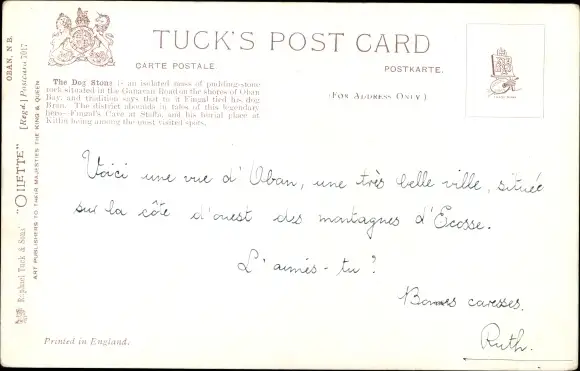 TUCK'S POST CARD
CARTE POSTALE.
POSTKARTE.
(FOR ADDRESS ONLY.)
The Dog Stone is an isolated mass of pudding-stone
rock situated in the Ganavan Road on the shores of Oban
Bay, and tradition says that to it Fingal tied his dog
Bran. The district abounds in tales of this legendary
hero—Fingal's Cave at Staffa, and his burial place at
Killin being among the most visited spots.
Voici une vue d'Oban, une très belle ville, située
sur la côte d'ouest des montagnes d'Écosse.
L'aimes-tu?
Bonnes caresses.
Ruth.
Printed in England.
OBAN, N.B.
[Regd.] Postcard 7017
"OILETTE"
Raphael Tuck & Sons'
ART PUBLISHERS TO THEIR MAJESTIES THE KING & QUEEN